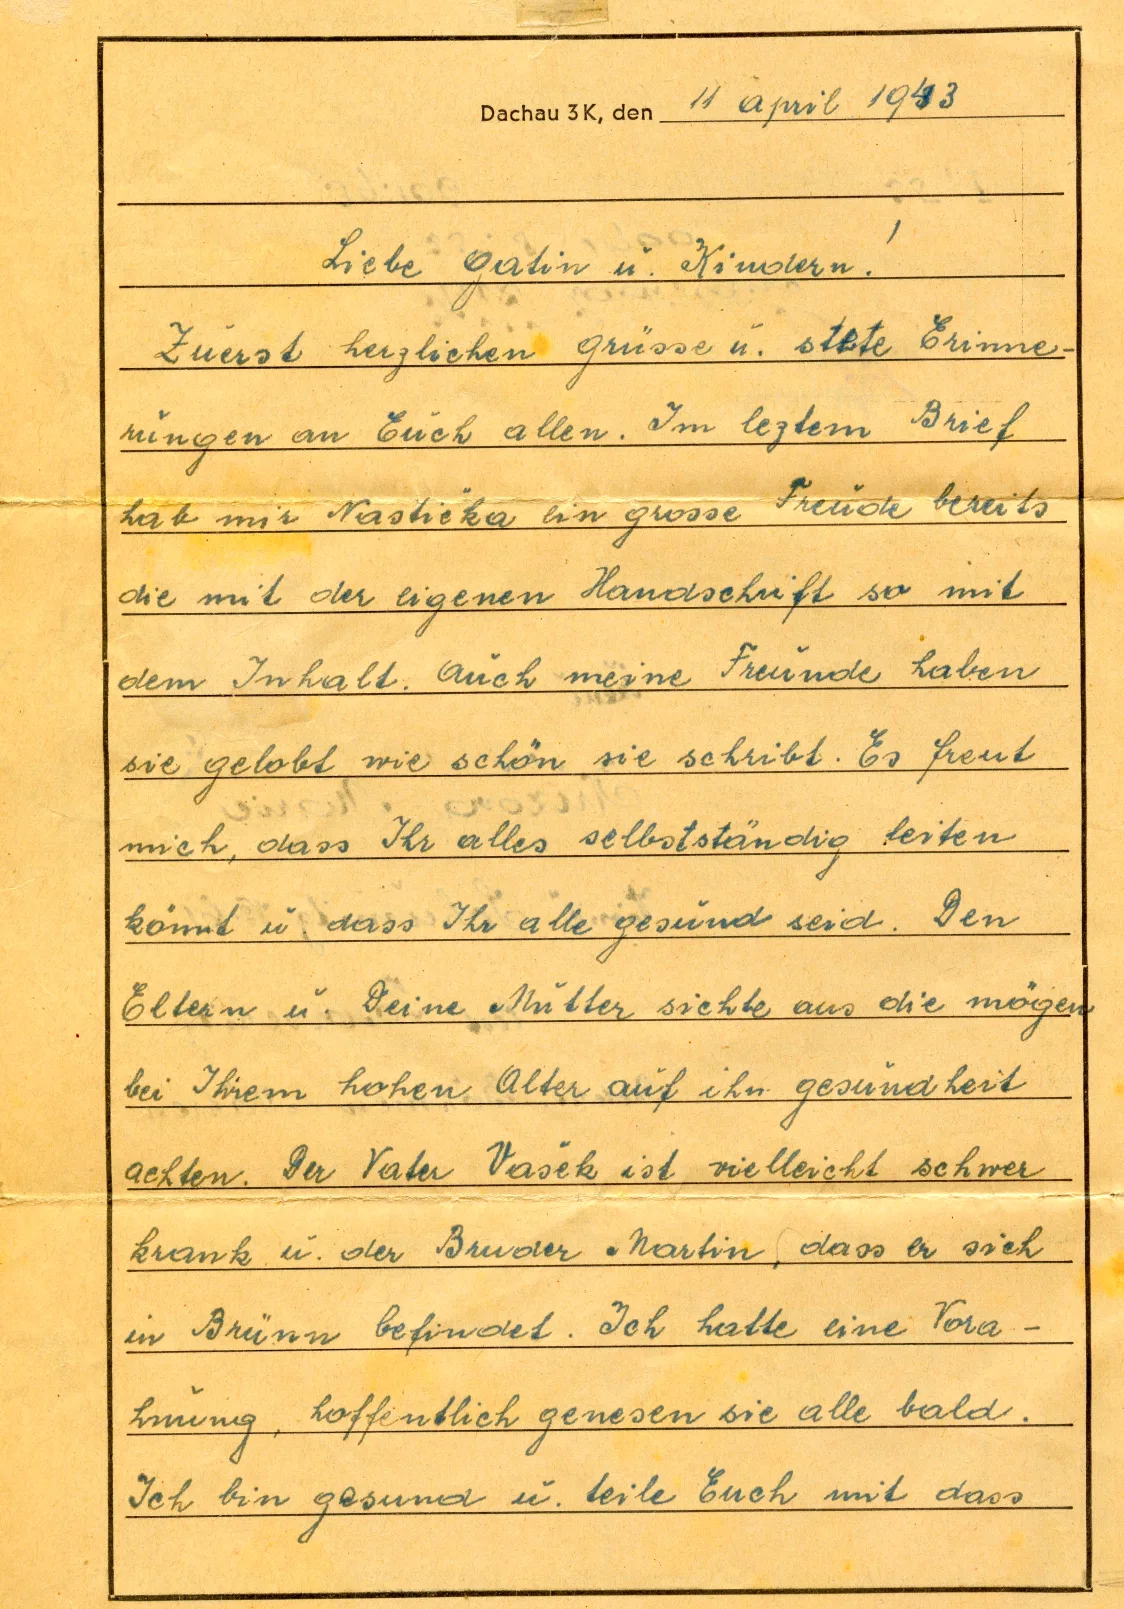 Dachau 3 K, den 11 april 1943
Liebe Gatin u. Kindern!
Zuerst herzlichen Grüsse u. stete Erinne-
rungen an Euch allen. Im leztem Brief
hab mir Nastička ein grosse Freude bereits
die mit der eigenen Handschrift so mit
dem Inhalt. Auch meine Freunde haben
sie gelobt wie schön sie schribt. Es freut
mich, dass Ihr alles selbstständig leiten
könnt u, dass Ihr alle gesund seid. Den
Eltern u. Deine Mutter sichte aus die mögen
bei Ihrem hohen Alter auf ihr gesundheit
achten. Der Vater Vašek ist vielleicht schwer
krank u. der Bruder Martin, dass er sich
in Brünn befindet. Ich hatte eine Vora-
hnung, hoffentlich genesen sie alle bald.
Ich bin gesund u. teile Euch mit dass